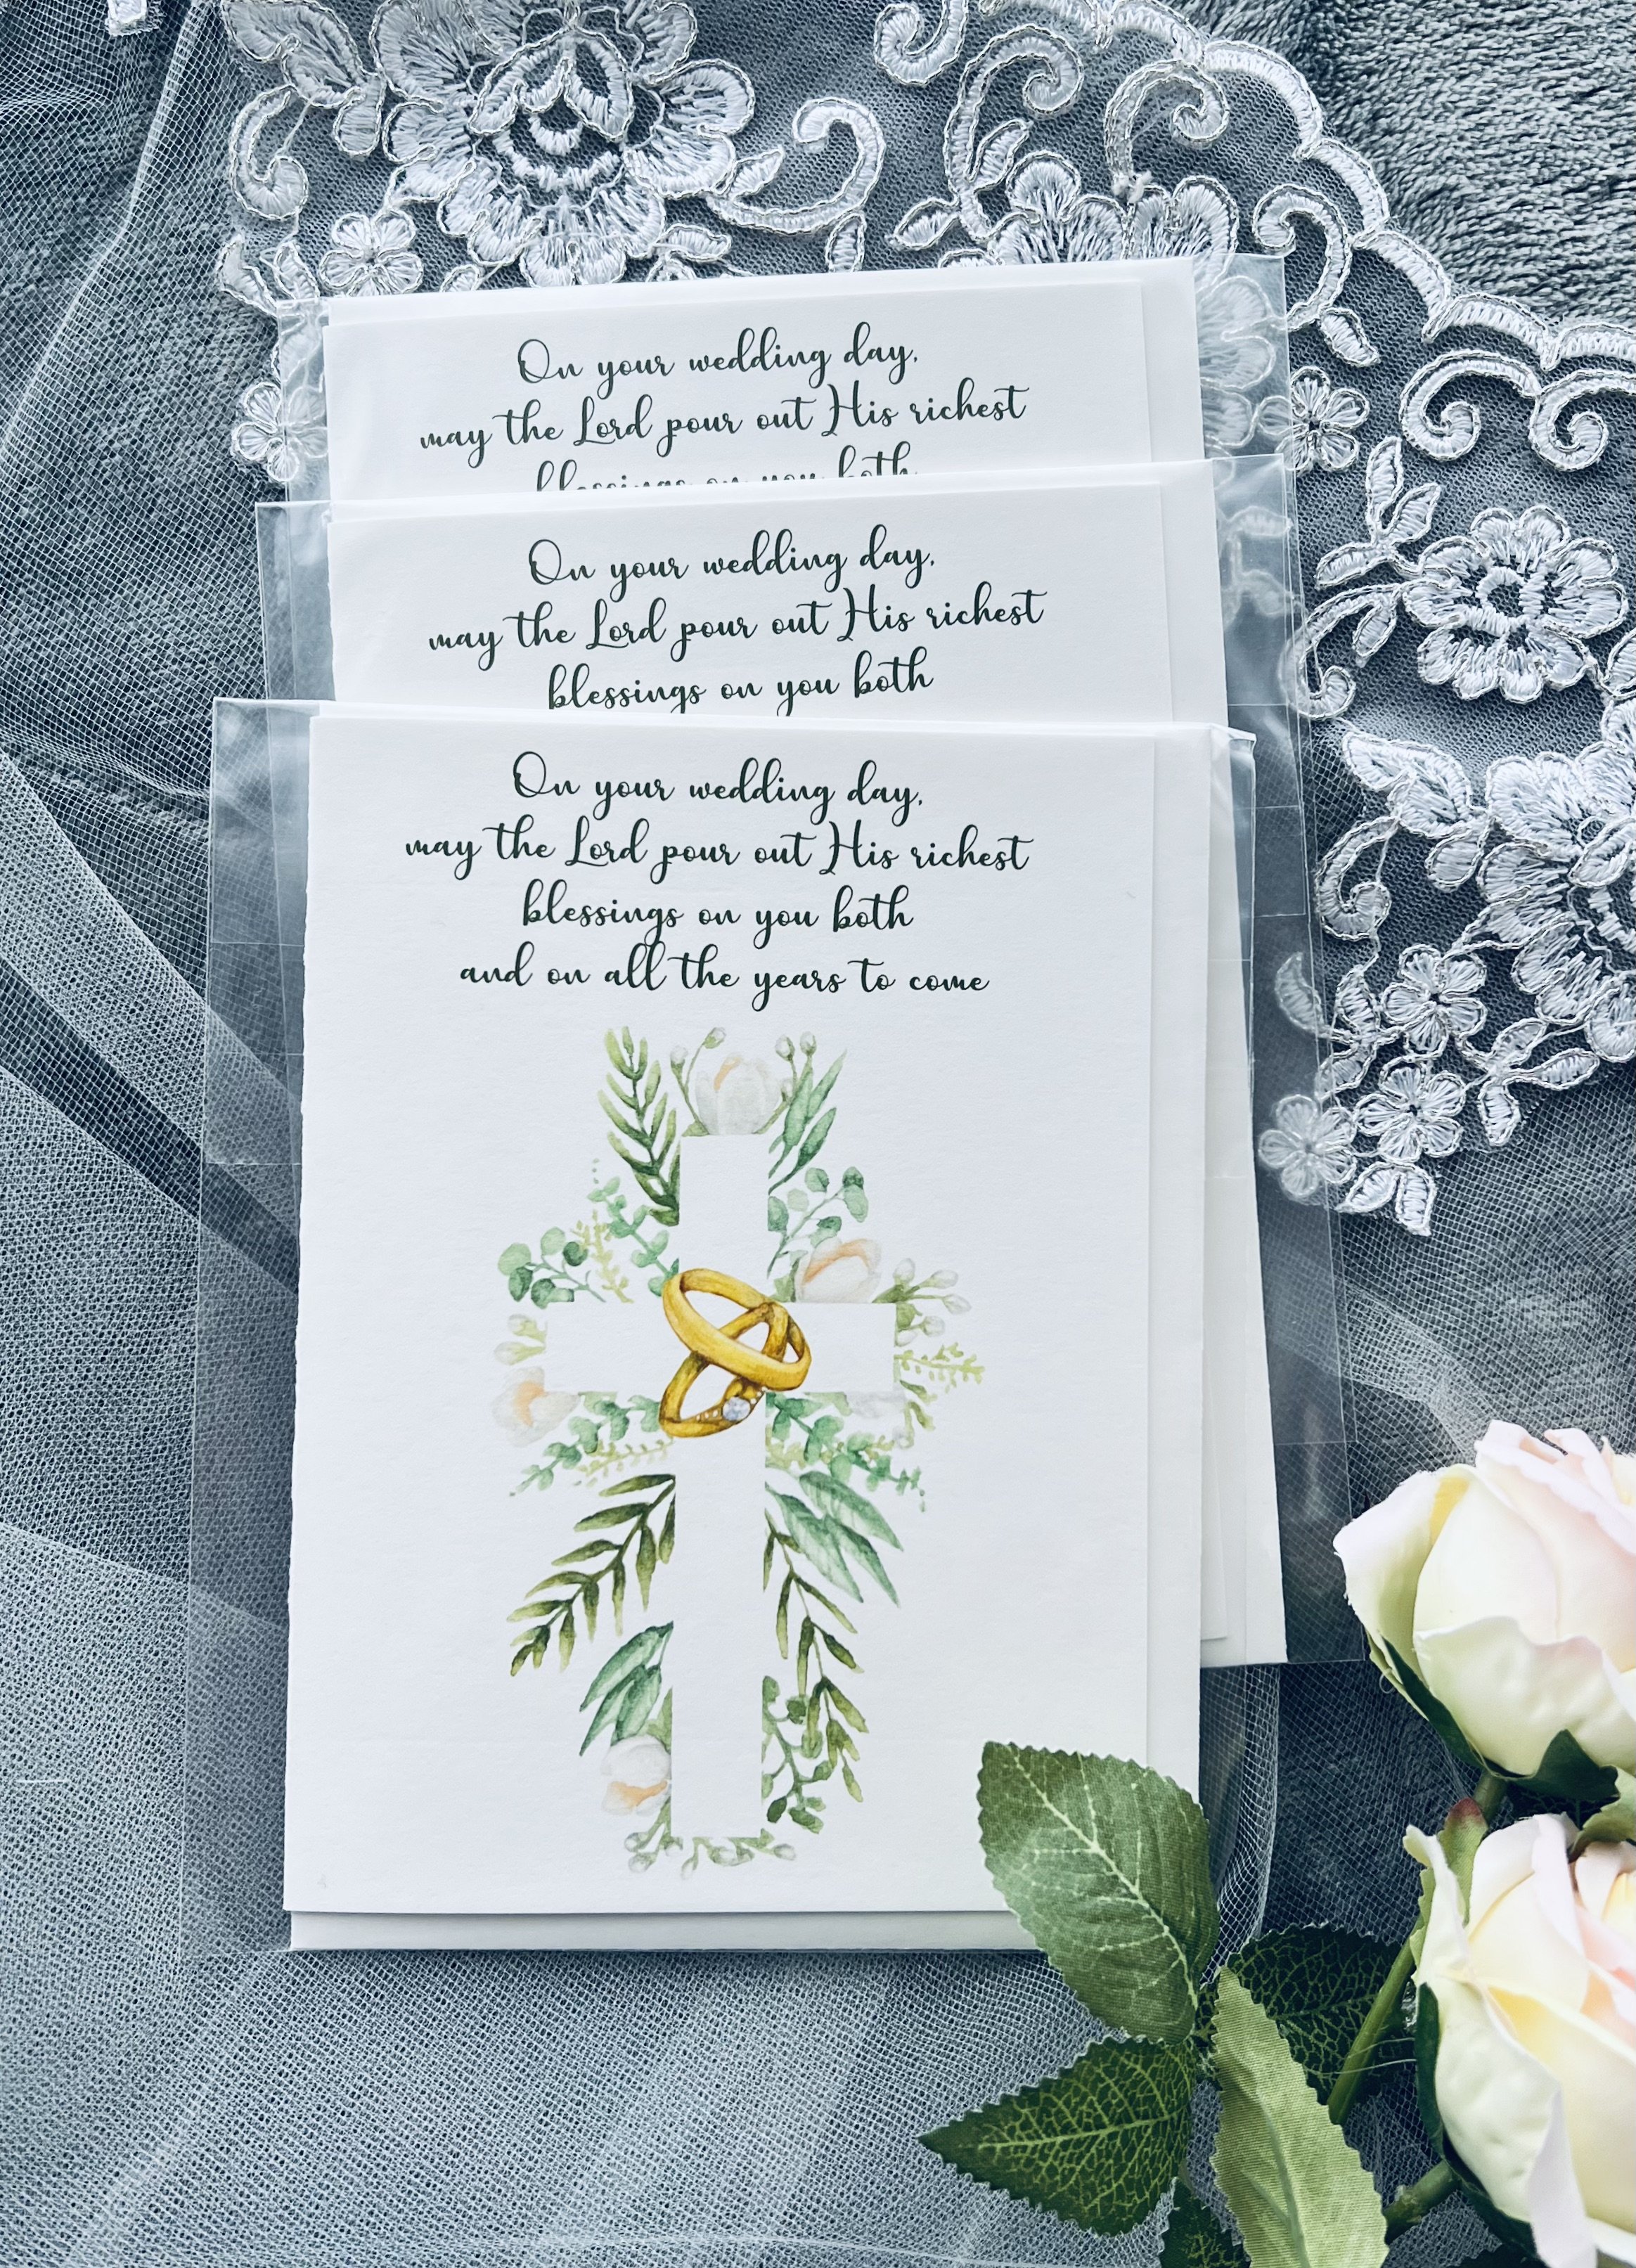 On your wedding day,
may the Lord pour out His richest
blessings on you both
On your wedding day,
may the Lord pour out His richest
blessings on you both
On your wedding day,
may the Lord pour out His richest
blessings on you both
and on all the years to come